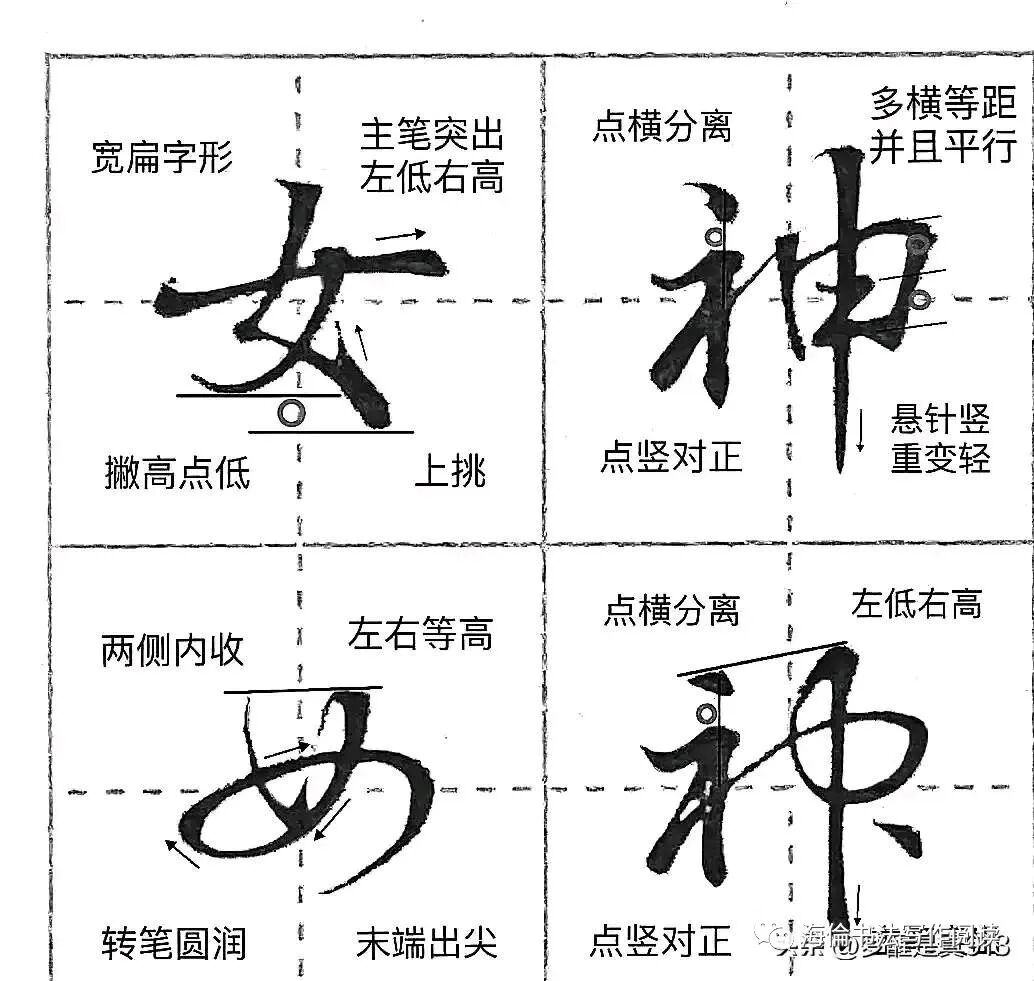 宽扁字形
主笔突出
左低右高
女
撇高点低
上挑
点横分离
多横等距
并且平行
神
点竖对正
悬针竖
重变轻
两侧内收
左右等高
女
转笔圆润
末端出尖
点横分离
左低右高
神
点竖对正